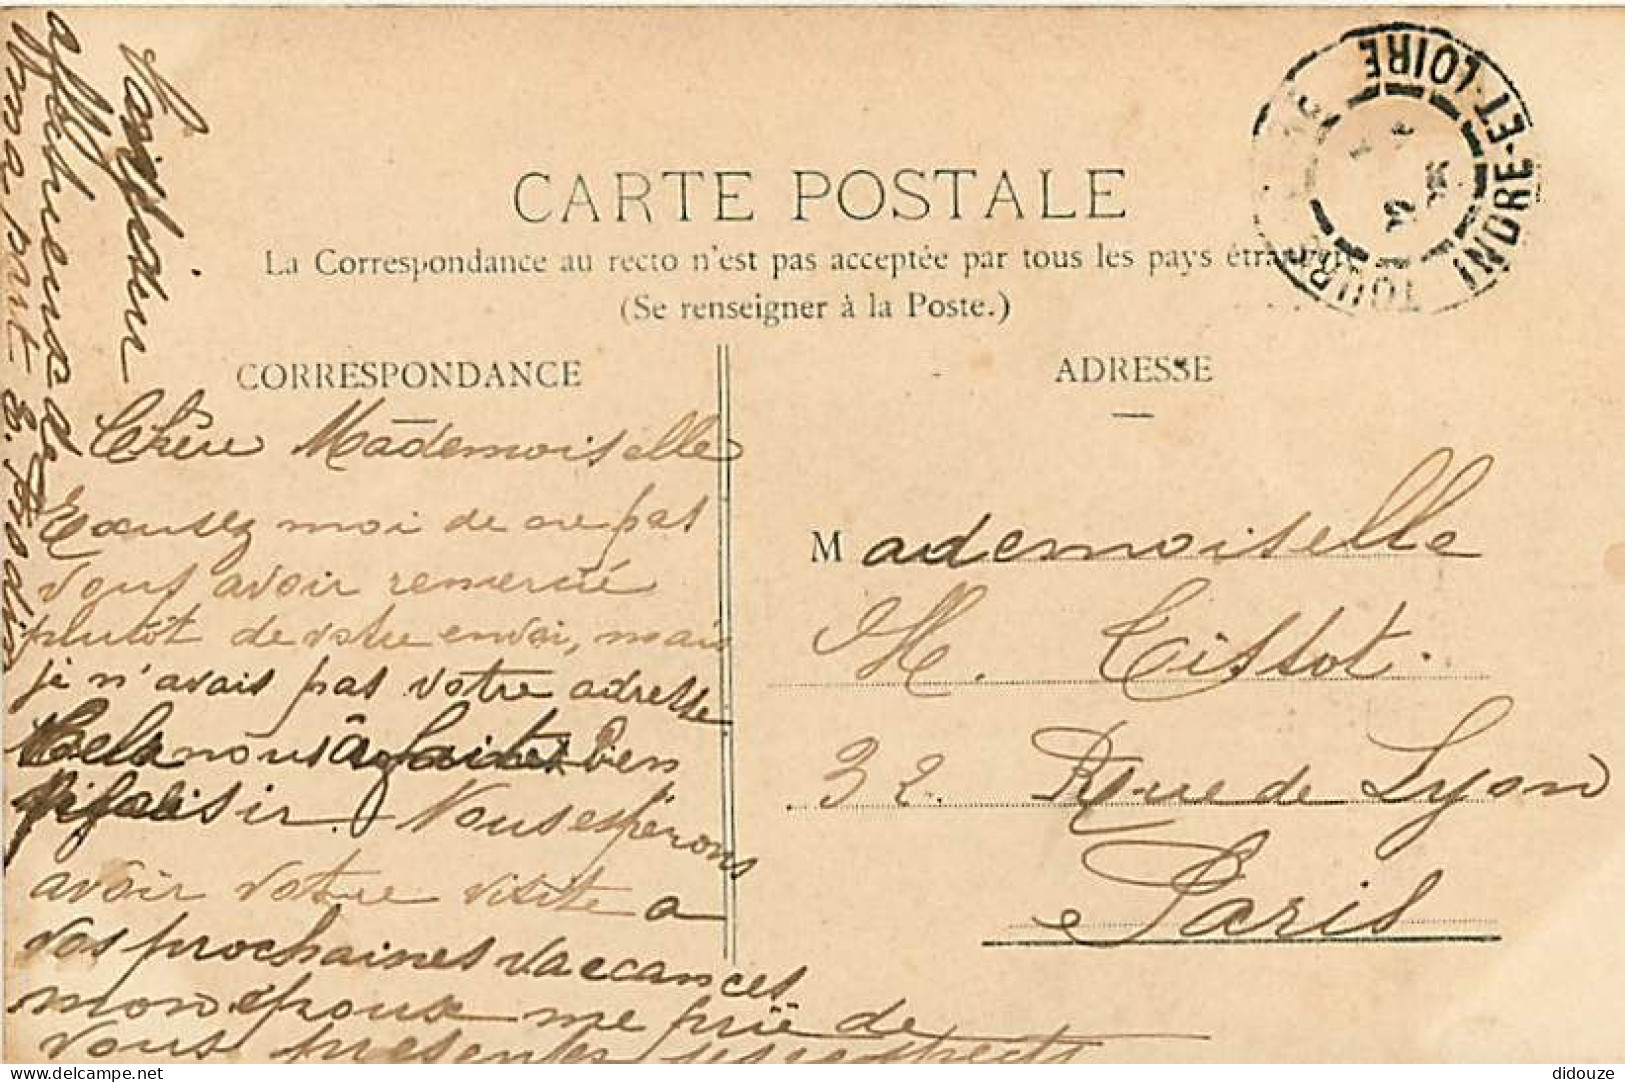 CARTE POSTALE
La Correspondance au recto n'est pas acceptée par tous les pays étrangers
(Se renseigner à la Poste.)
TOURS
INDRE-ET-LOIRE
CORRESPONDANCE
ADRESSE
Chère Mademoiselle
Excusez moi de ne pas
vous avoir remercié
plutôt de votre envoi, mais
je n'avais pas votre adresse
Cela nous a faites bien
plaisir. Nous espérons
avoir votre visite a
vos prochaines vaccances
mon époux me prie de
vous présenter ses respects
affectueuse de
ma part
Mademoiselle
M. Tissot.
32. Rue de Lyon
Paris
delcampe.net
didouze